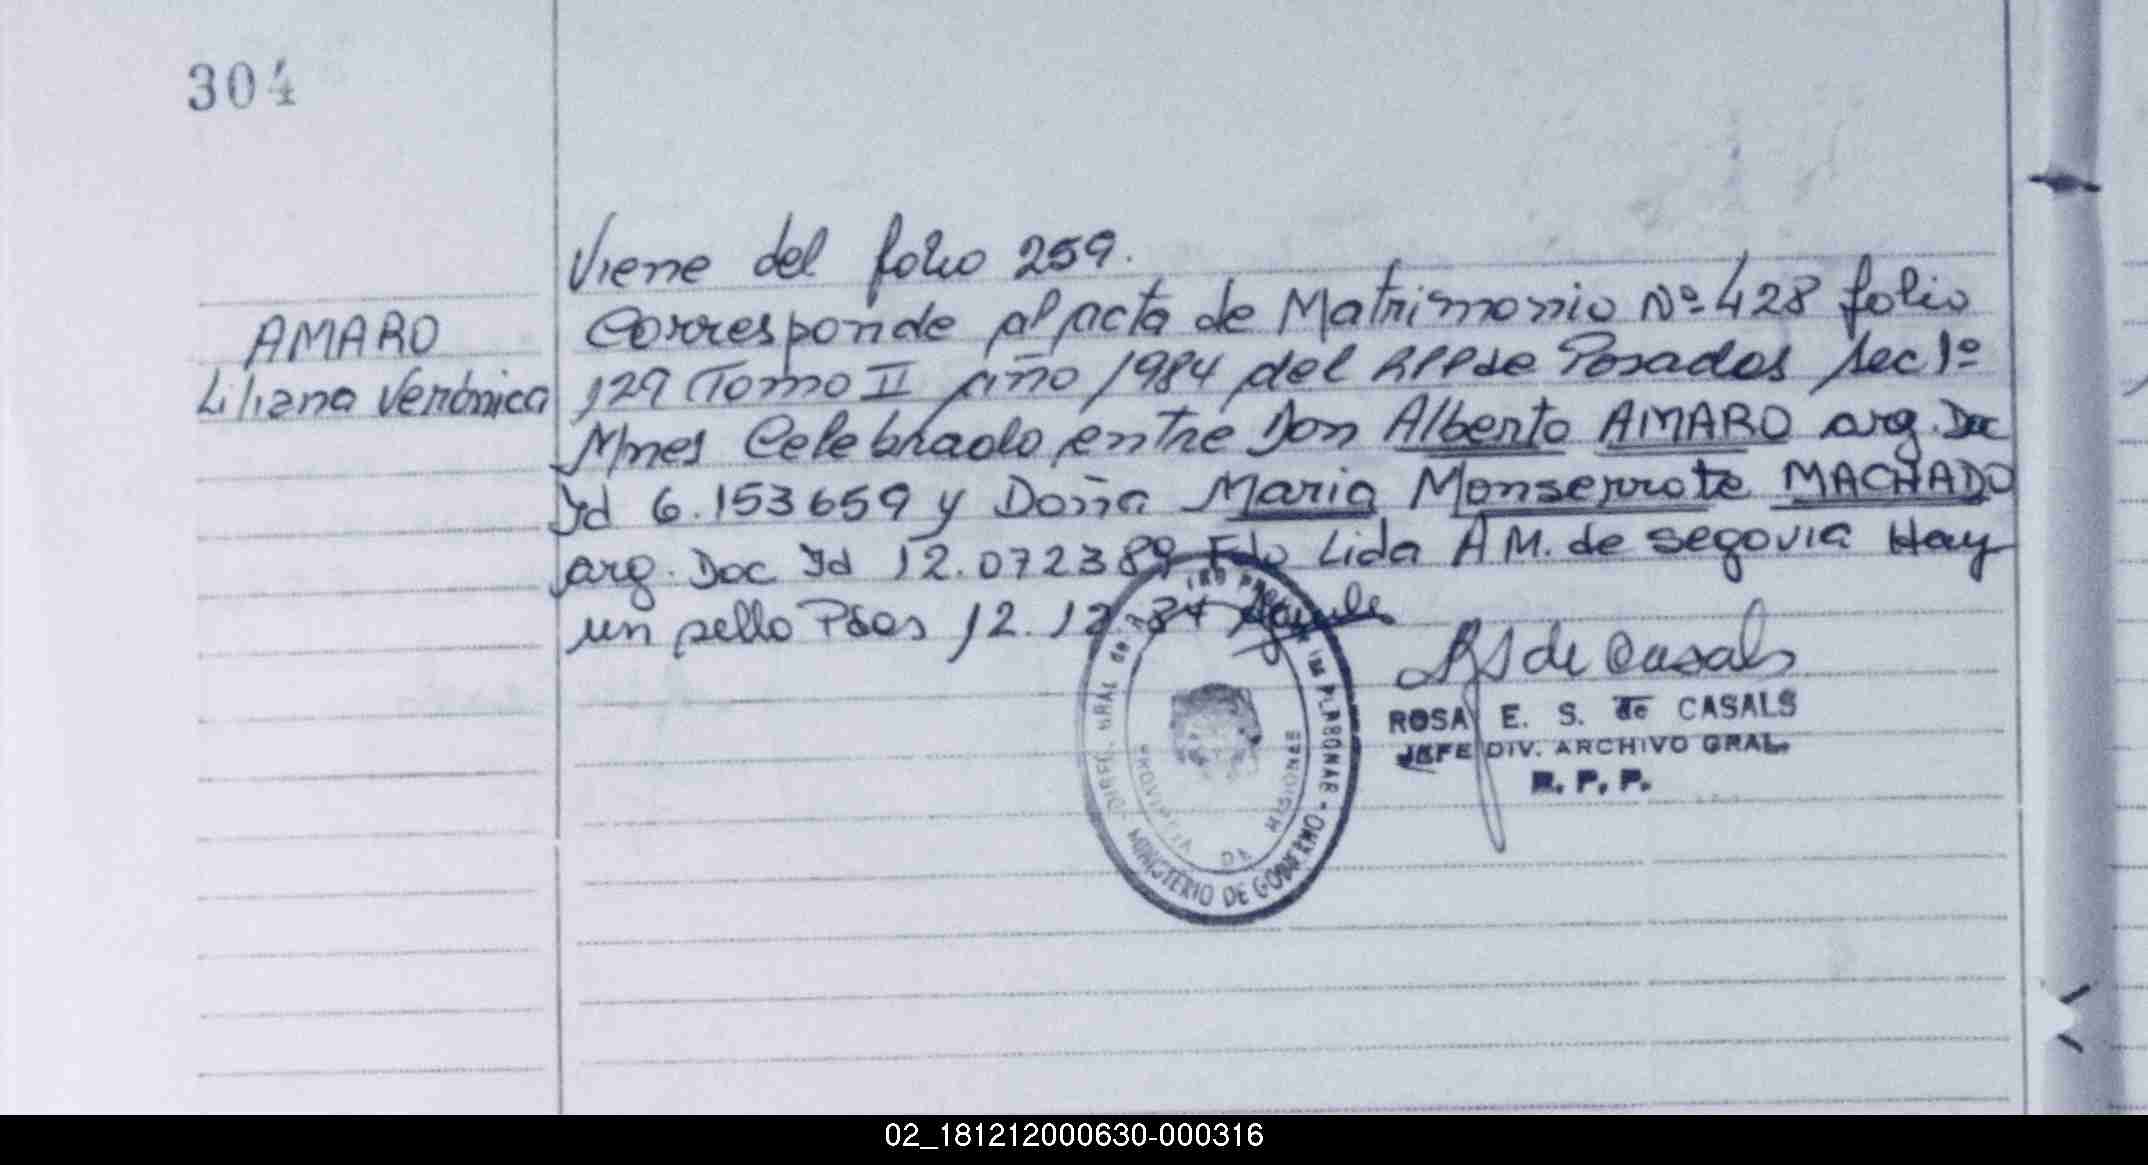 304
Viene del folio 259.
AMARO
Liliana Verónica
Corresponde al acta de Matrimonio Nº 428 folio
129 Tomo II año 1984 del RPP de Posadas Sec 1º
Mnes Celebrado entre Don Alberto AMARO arg. Doc
Id 6.153659 y Doña Maria Monserrate MACHADO
arg. Doc Id 12.072389 Fdo Lida A M. de Segovia Hay
un sello Pdas 12.12.84
RS de Casals
ROSA E. S. de CASALS
JEFE DIV. ARCHIVO GRAL.
R. P. P.
MINISTERIO DE GOBIERNO
PROVINCIA DE MISIONES
02_181212000630-000316